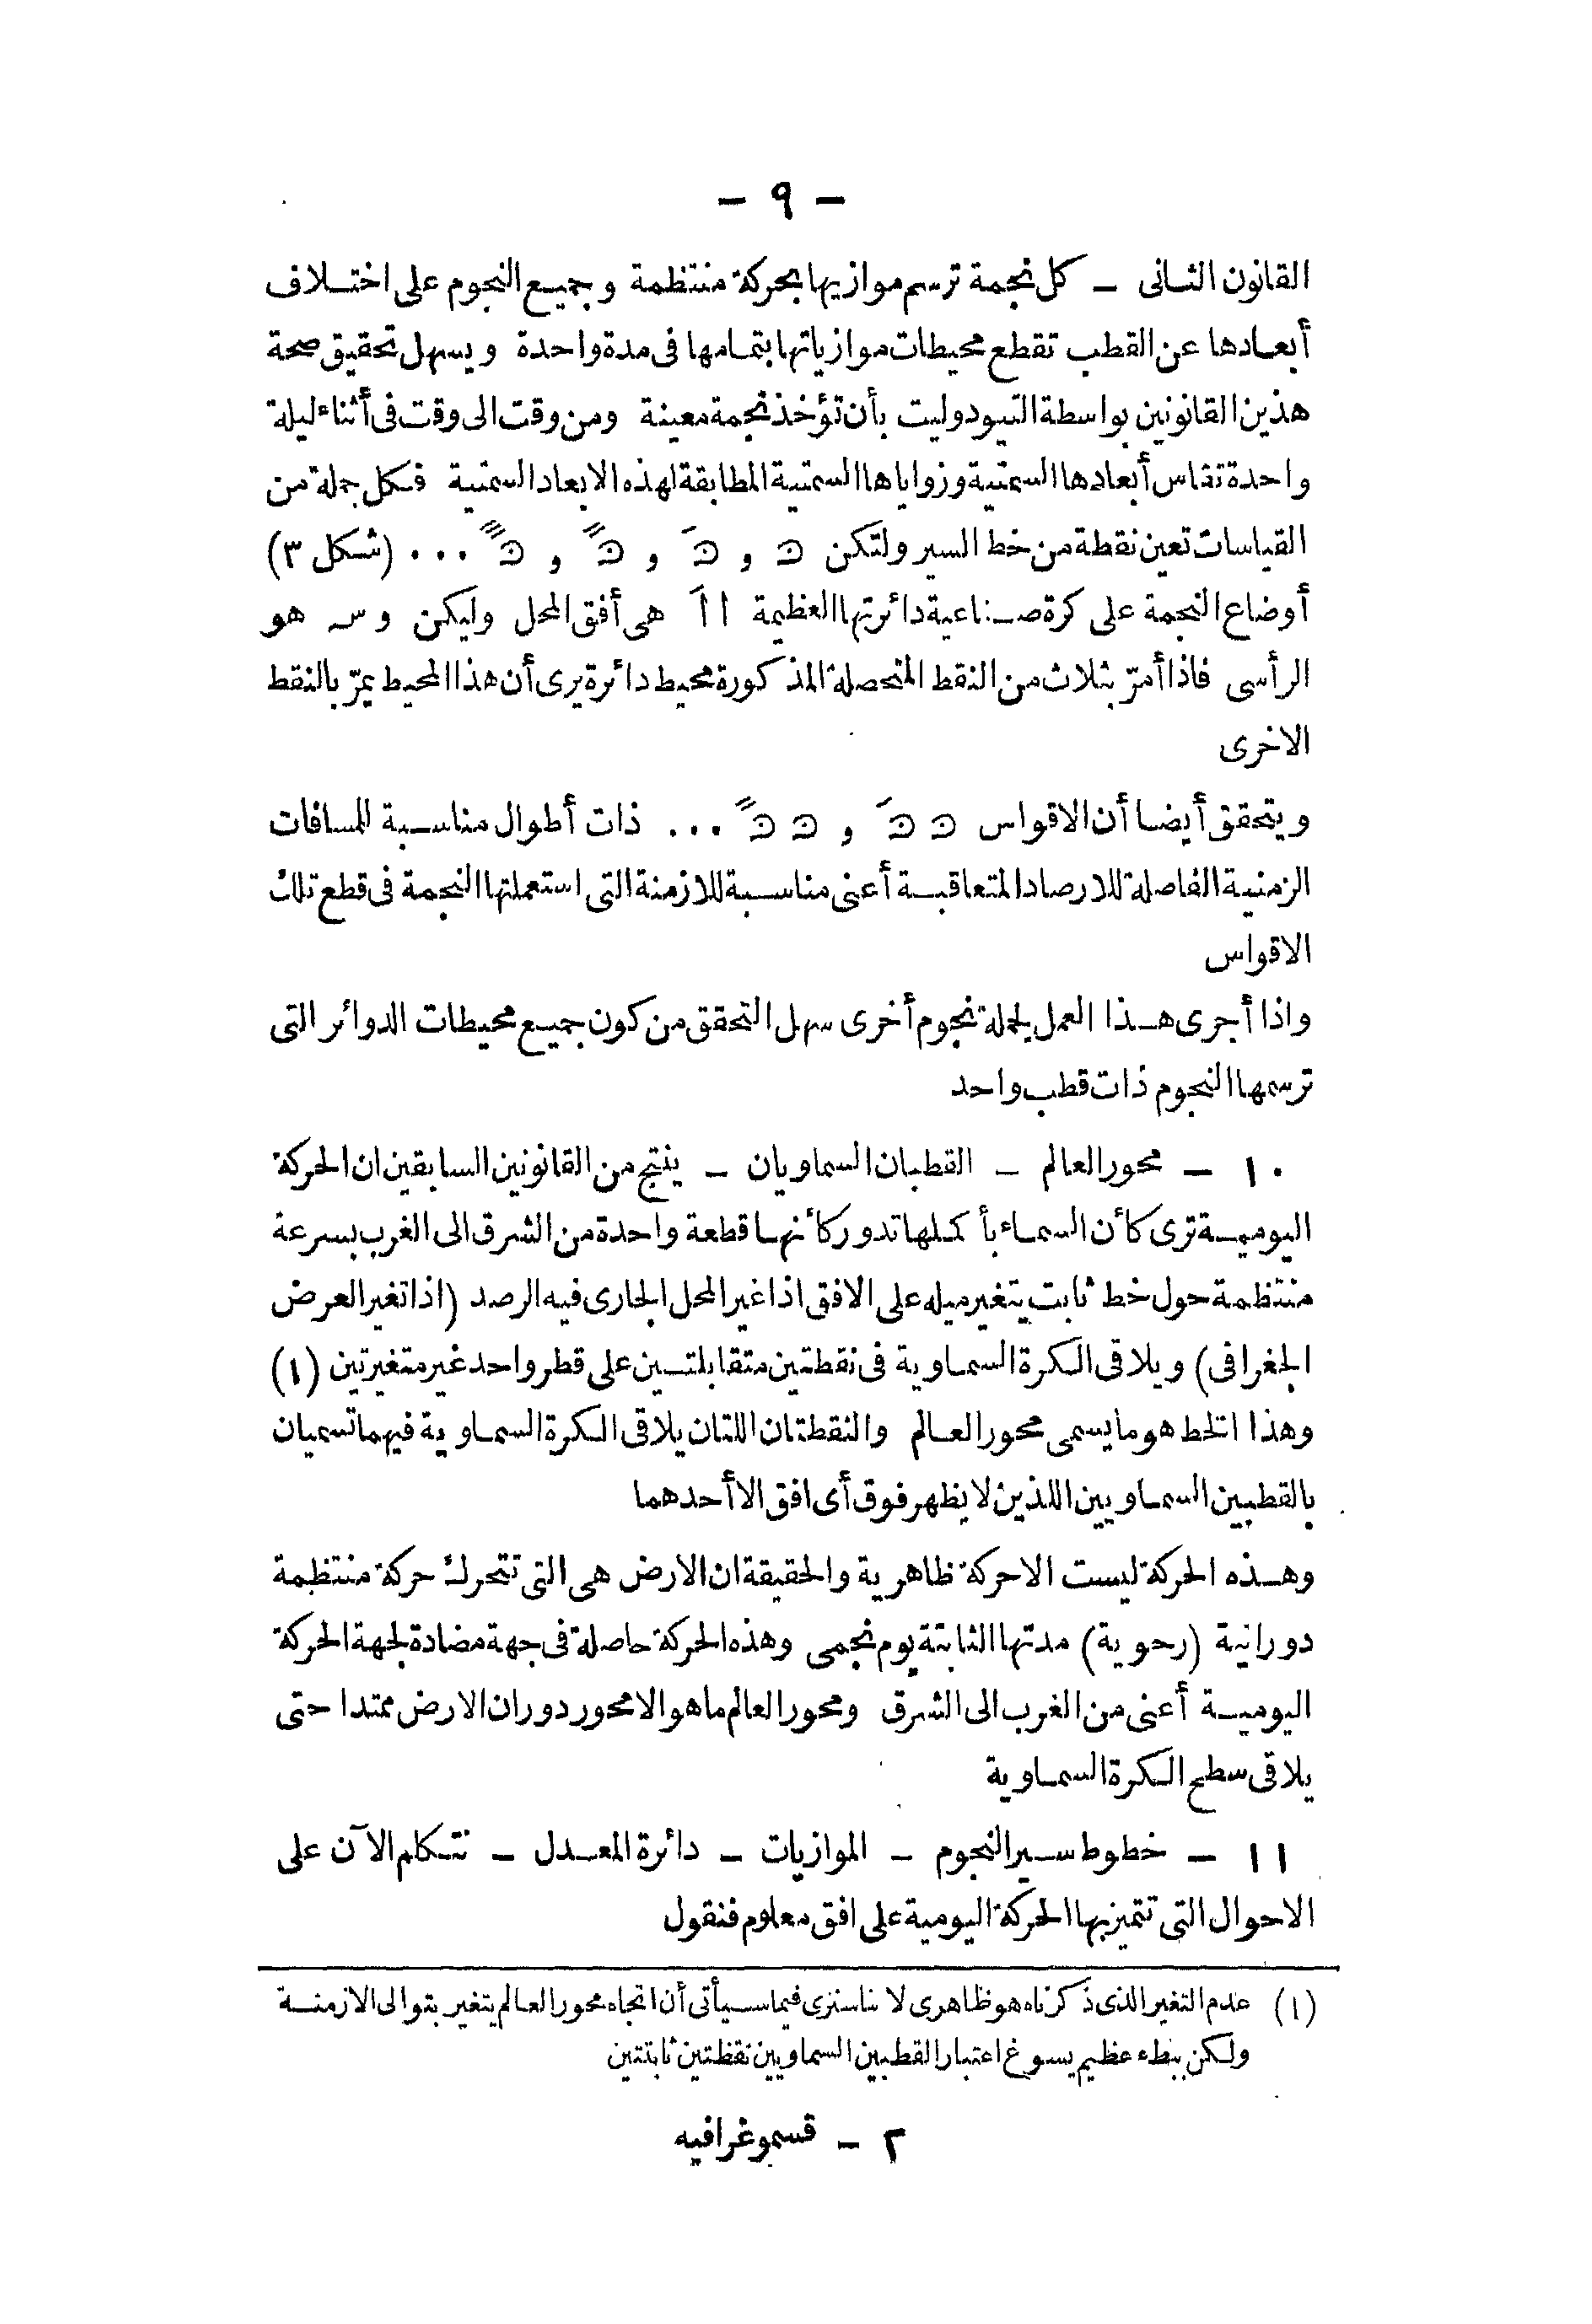 — ٩ —
القانون الثانى — كل نجمة ترسم موازيها بحركة منتظمة وجميع النجوم على اختلاف
أبعادها عن القطب تقطع محيطات موازياتها بتمامها فى مدة واحدة ويسهل تحقيق صحة
هذين القانونين بواسطة التيودوليت بأن تؤخذ نجمة معينة ومن وقت الى وقت فى أثناء ليلة
واحدة تقاس أبعادها السمتية وزواياها السمتية المطابقة لهذه الابعاد السمتية فكل جملة من
القياسات تعين نقطة من خط السير ولتكن ن و نَ و نً و نً ... (شكل ٣)
أوضاع النجمة على كرة صناعية دائرتها العظيمة ا اَ هى أفق المحل وليكن و س هو
الرأسى فاذا أمرّ بثلاث من النقط المتحصلة المذكورة محيط دائرة يرى أن هذا المحيط يمرّ بالنقط
الاخرى
ويتحقق أيضا أن الاقواس ن نَ و ن نً ... ذات أطوال مناسبة للمسافات
الزمنية الفاصلة للارصاد المتعاقبة أعنى مناسبة للازمنة التى استعملتها النجمة فى قطع تلك
الاقواس
واذا أجرى هذا العمل لجملة نجوم أخرى سهل التحقق من كون جميع محيطات الدوائر التى
ترسمها النجوم ذات قطب واحد
١٠ — محور العالم — القطبان السماويان — ينتج من القانونين السابقين ان الحركة
اليومية ترى كأن السماء بأكملها تدور كأنها قطعة واحدة من الشرق الى الغرب بسرعة
منتظمة حول خط ثابت يتغير ميله على الافق اذا غير المحل الجارى فيه الرصد (اذا تغير العرض
الجغرافى) ويلاقى الكرة السماوية فى نقطتين متقابلتين على قطر واحد غير متغيرتين (١)
وهذا الخط هو ما يسمى محور العالم والنقطتان اللتان يلاقى الكرة السماوية فيهما تسميان
بالقطبين السماويين اللذين لا يظهر فوق أى افق الا أحدهما
وهذه الحركة ليست الا حركة ظاهرية والحقيقة ان الارض هى التى تتحرك حركة منتظمة
دورانية (رحوية) مدتها الثابتة يوم نجمى وهذه الحركة حاصلة فى جهة مضادة لجهة الحركة
اليومية أعنى من الغرب الى الشرق ومحور العالم ما هو الا محور دوران الارض ممتدا حتى
يلاقى سطح الكرة السماوية
١١ — خطوط سير النجوم — الموازيات — دائرة المعدل — نتكلم الآن على
الاحوال التى تتميز بها الحركة اليومية على افق معلوم فنقول
(١) عدم التغير الذى ذكرناه هو ظاهرى لاننا سنرى فيما سيأتى أن اتجاه محور العالم يتغير بتوالى الازمنة
ولكن ببطء عظيم يسوغ اعتبار القطبين السماويين نقطتين ثابتتين
٢ — قسموغرافيه